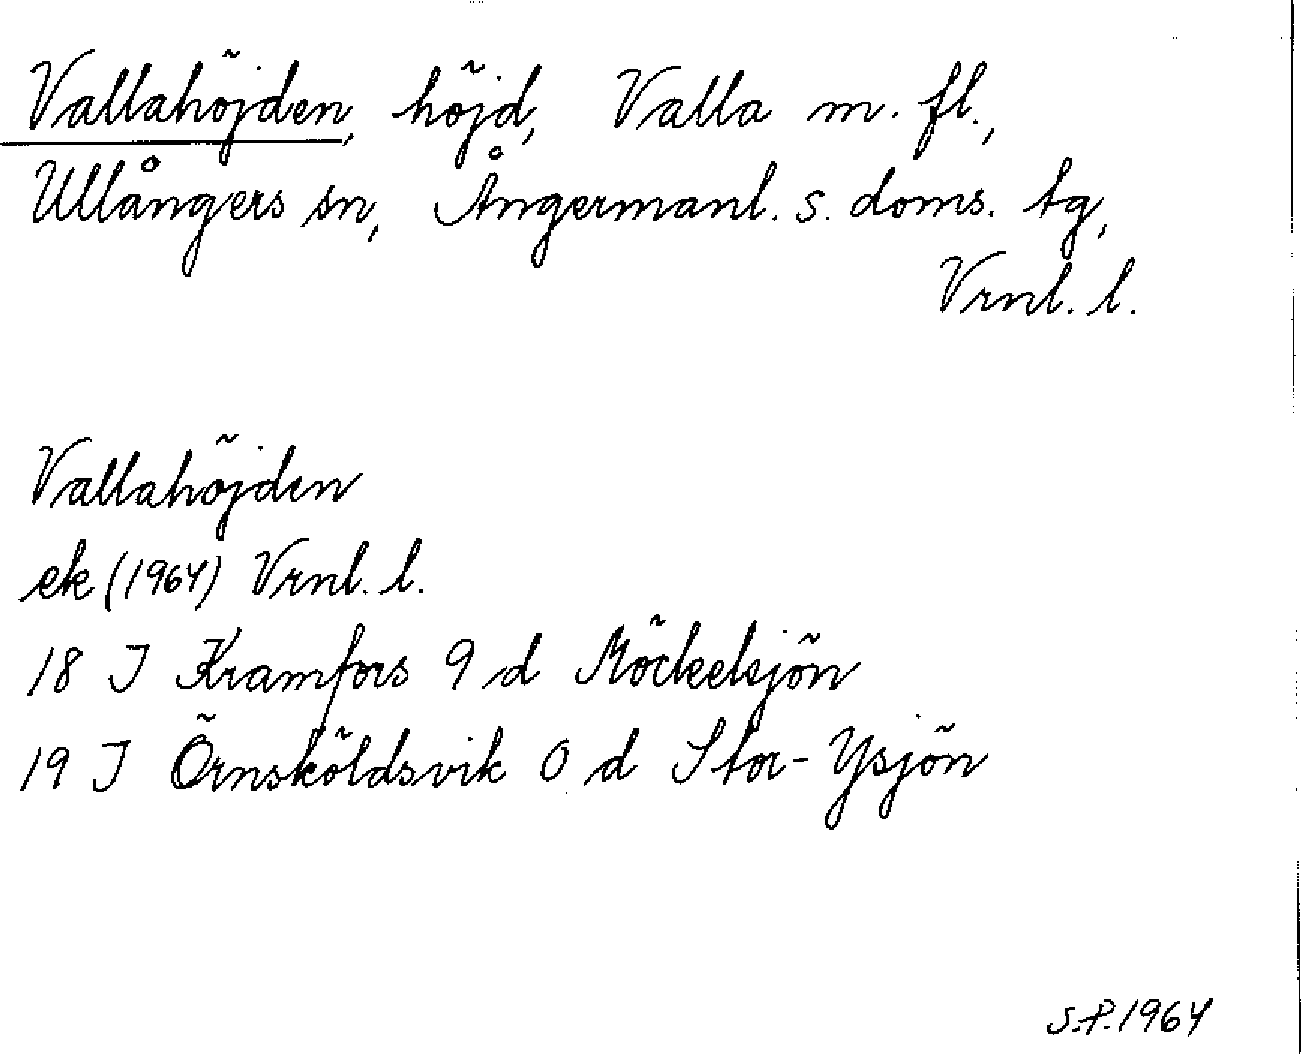 Vallahöjden, höjd, Valla m. fl.,
Ullångers sn, Ångermanl. s. doms. tg,
Vrnl. l.
Vallahöjden
ek (1964) Vrnl. l.
18 J Kramfors 9 d Möckelsjön
19 J Örnsköldsvik 0 d Stor-Ysjön
S.P. 1964